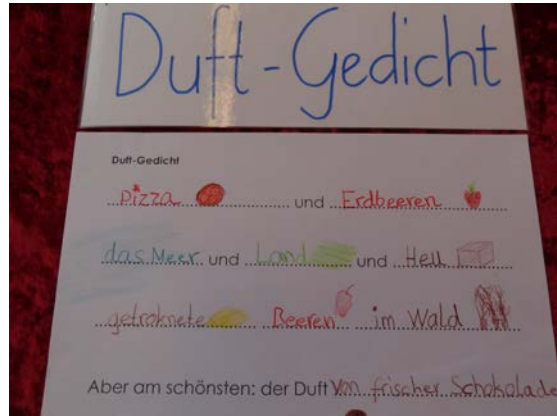 Duft-Gedicht
Duft-Gedicht
Pizza und Erdbeeren
das Meer und Land und Heu
getroknete Beeren im Wald
Aber am schönsten: der Duft von frischer Schokolade